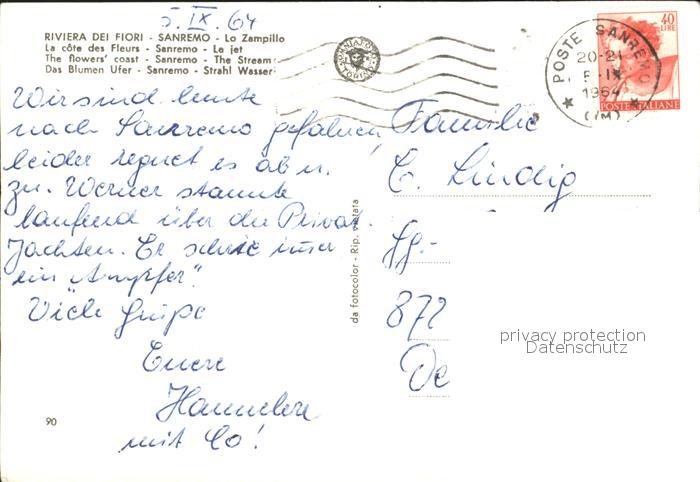 5. IX. 64
RIVIERA DEI FIORI - SANREMO - Lo Zampillo
La côte des Fleurs - Sanremo - Le jet
The flowers' coast - Sanremo - The Stream
Das Blumen Ufer - Sanremo - Strahl Wasser
POSTE SANREMO
20-21
5-IX
1964
(IM)
40
LIRE
POSTE ITALIANE
Wir sind heute
nach Sanremo gefahren,
leider regnet es ab u.
zu. Werner staunte
laufend über die Privat-
Jachten. Er schrie immer
ein
Viele Grüße
Euere
Hannelore
mit Co!
Familie
C. Lindig
872
De
da fotocolor - Rip. vietata
90
privacy protection
Datenschutz